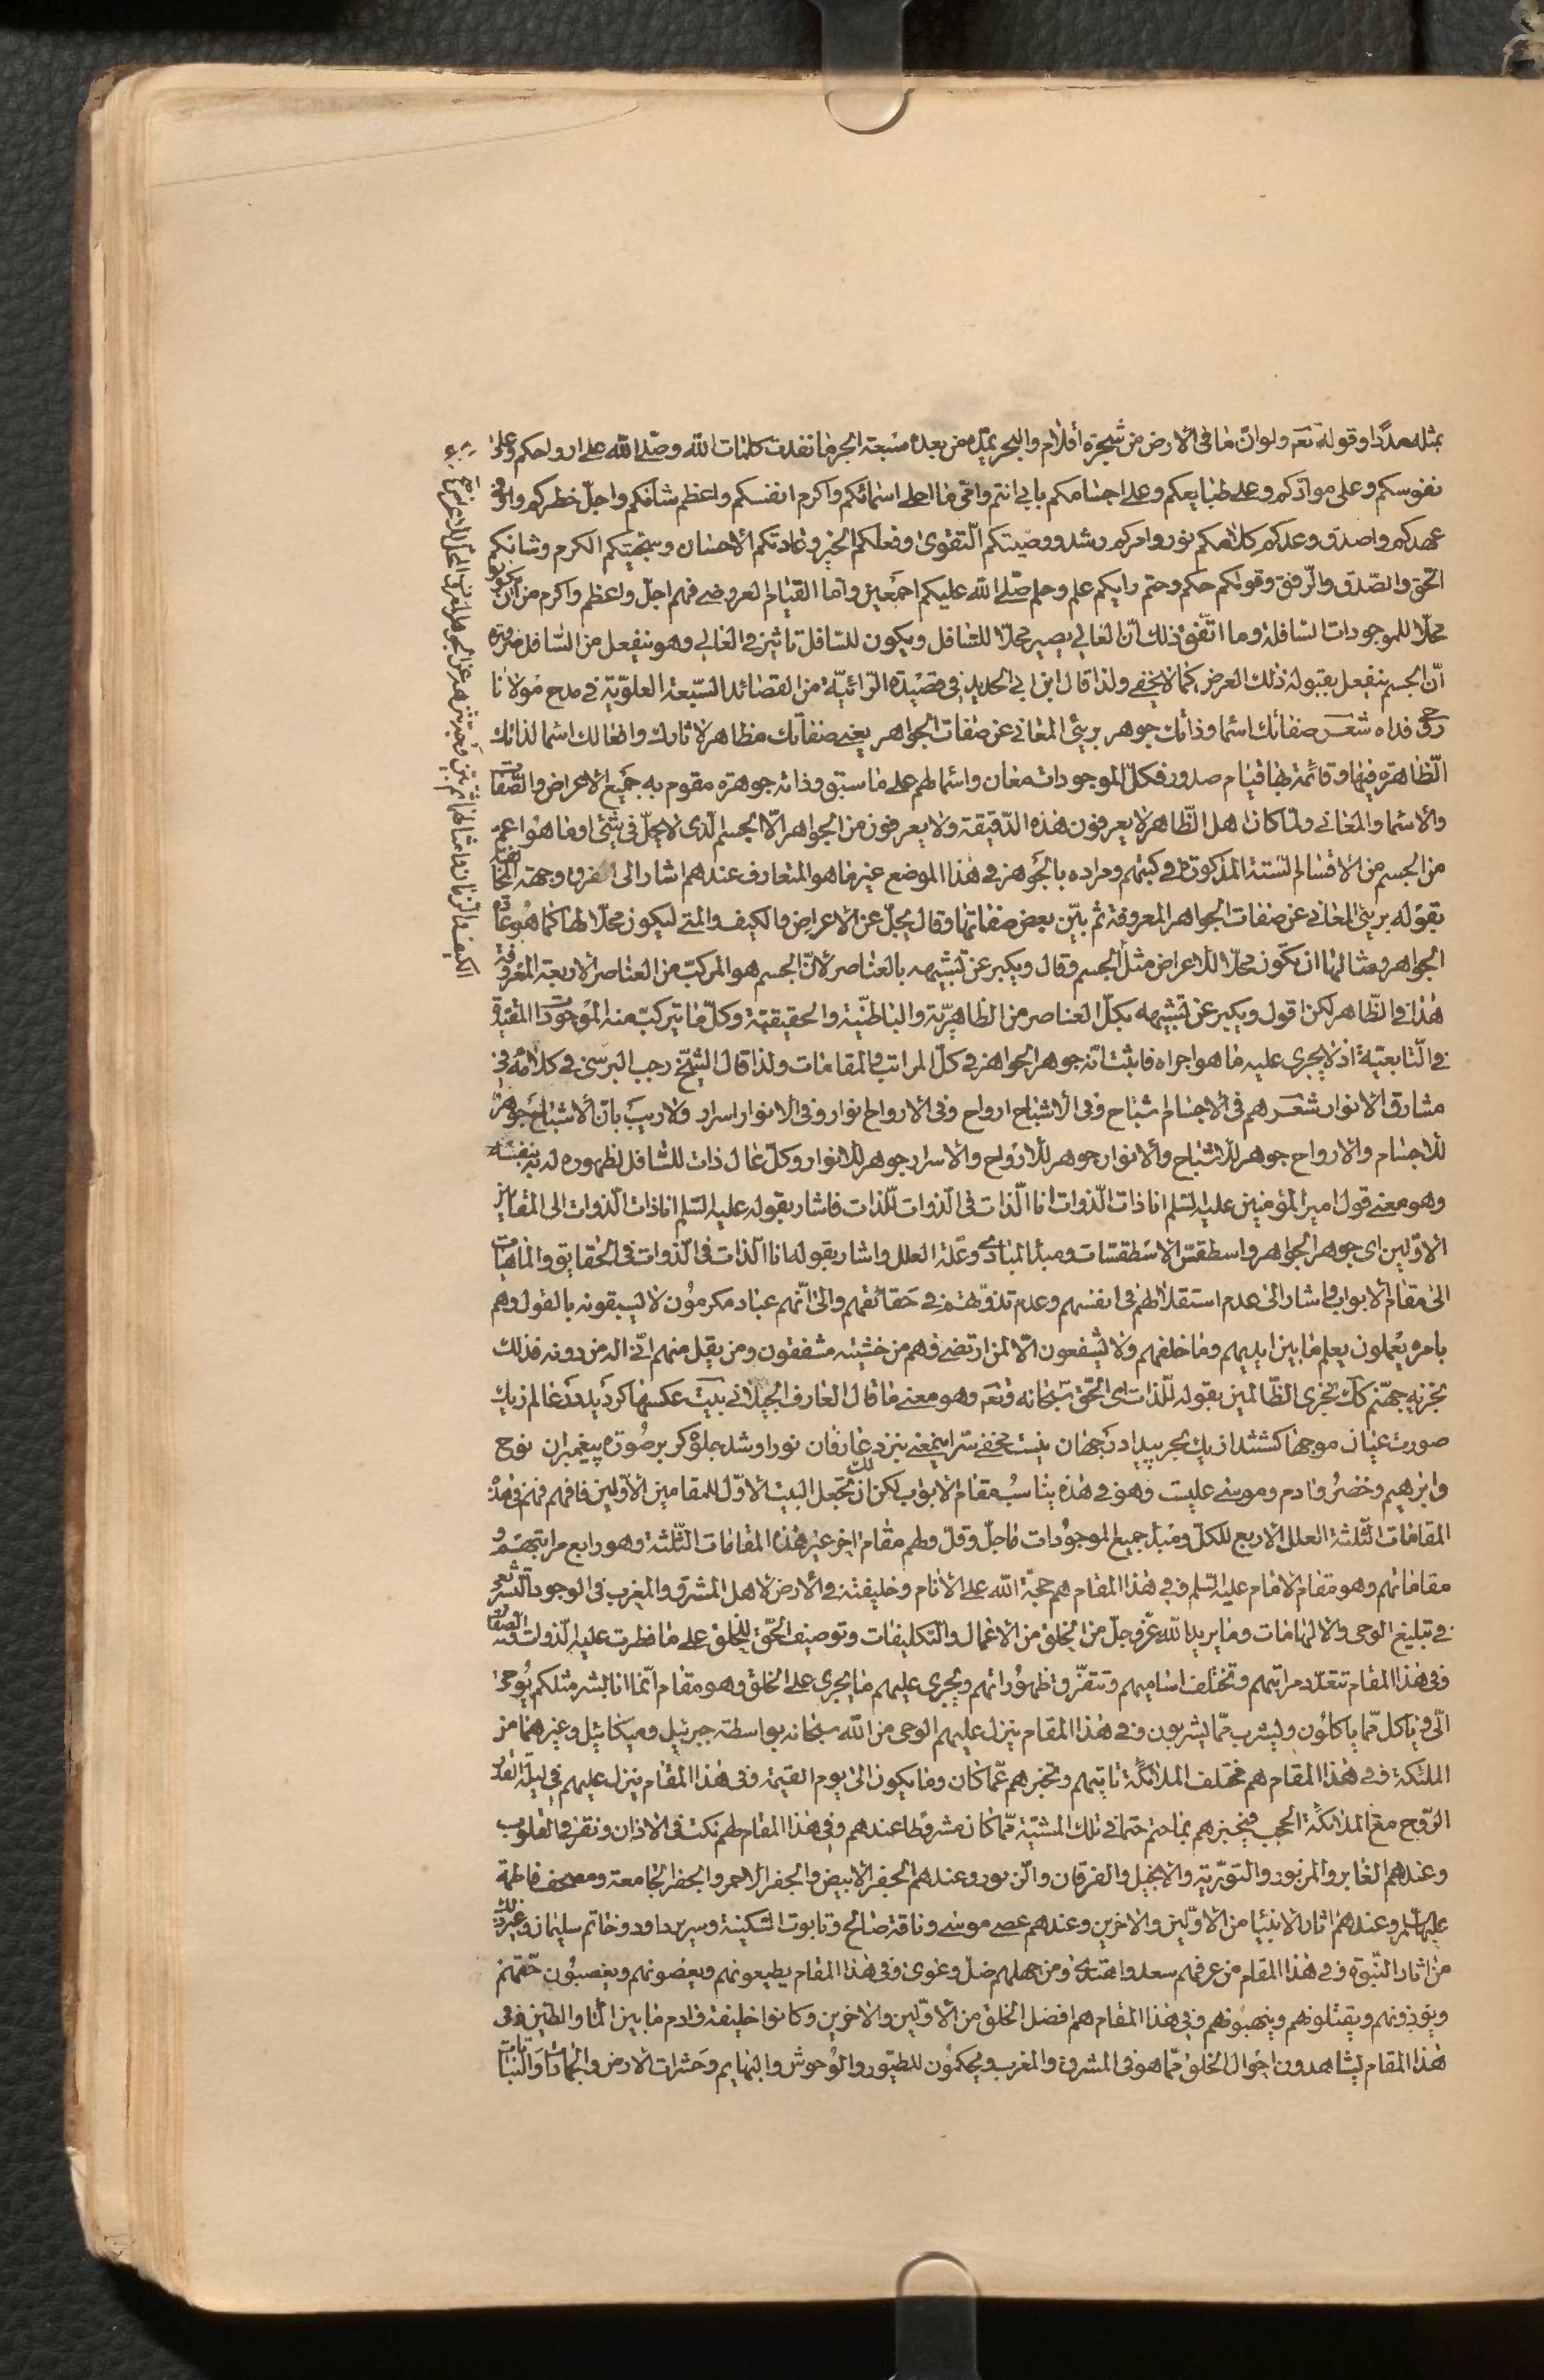 بمثله مددا وقوله تعم ولو ان ما فى الارض من شجرة اقلام والبحر يمدّه من بعده سبعة ابحر ما نفدت كلمات الله وصلى الله على ارواحكم وعلى
نفوسكم وعلى موادّكم وعلى طبايعكم وعلى اجسامكم بابى انتم وامّى فما احلى اسمائكم واكرم انفسكم واعظم شانكم واجلّ خطركم واوفى
عهدكم واصدق وعدكم كلامكم نور وامركم رشد ووصيّتكم التّقوى وفعلكم الخير وعادتكم الاحسان وسجيّتكم الكرم وشانكم
الحق والصّدق والرّفق وقولكم حكم وحتم ورايكم علم وحلم صلّى الله عليكم اجمعين وامّا القيام العروضى فهم اجلّ واعظم واكرم من ان يكونوا
محلّا للموجودات السّافلة وما اتّفق ذلك انّ العالى يصير محلّا للسّافل ويكون للسّافل تاثير فى العالى وهو ينفعل من السّافل ضرورة
انّ الجسم ينفعل بقبوله ذلك العرض كما لا يخفى ولذا قال ابن ابى الحديد فى قصيدة الرّائيّة من القصائد السّبعة العلويّة فى مدح مولانا
روحى فداه شعر صفاتك اسما وذاتك جوهر برئ المعانى عن صفات الجواهر يعنى صفاتك مظاهر لاثارك وافعالك اسما لذاتك
الظّاهرة فيها وقائمة بها قيام صدور فكلّ الموجودات معان واسما لهم على ما سبق وذاته جوهرة مقوم به جميع الاعراض والصّفات
والاسما والمعانى ولمّا كان اهل الظّاهر لا يعرفون هذه الدّقيقة ولا يعرفون من الجواهر الّا الجسم الّذى لا يحلّ فى شئ او ما هو اعمّ
من الجسم من الاقسام السّتة المذكورة فى كتبهم ومراده بالجوهر فى هذا الموضع غير ما هو المتعارف عندهم اشار الى الفرق وجهة المخالفة
بقوله برئ المعانى عن صفات الجواهر المعروفة ثم بيّن بعض صفاتها وقال يجلّ عن الاعراض والكيف والمتى ليكون محلّا لها كما هو عادة
الجواهر ومثالها ان تكون محلّا للاعراض مثل الجسم وقال ويكبر عن تشبيهه بالعناصر لانّ الجسم هو المركّب من العناصر الاربعة المعروفة
هذا فى الظّاهر لكن اقول ويكبر عن تشبيهه بكلّ العناصر من الظاهريّة والباطنيّة والحقيقيّة وكلّ ما يتركّب منه الموجودات المقيّدة
فى التّابعيّة اذ لا يجرى عليه ما هو اجراه فاثبت انّه جوهر الجواهر فى كلّ المراتب والمقامات ولذا قال الشّيخ رجب البرسى فى كلامه فى
مشارق الانوار شعر هم فى الاجسام اشباح وفى الاشباح ارواح وفى الارواح انوار وفى الانوار اسرار ولا ريب بان الاشباح جوهر
للاجسام والارواح جوهر للاشباح والانوار جوهر للارواح والاسرار جوهر للانوار وكلّ عال ذات للسّافل لظهوره له به بنفسه
وهو معنى قول امير المؤمنين عليه السّلم انا ذات الذّوات انا الذّات فى الذّوات للذّات فاشار بقوله عليه السّلم انا ذات الذّوات الى المقامين
الاوّلين اى جوهر الجواهر واسطقسّ الاسطقسّات ومبدأ المبادى وعلّة العلل واشار بقوله انا الذّات فى الذّوات فى الحقايق والماهيات
الى مقام الابواب واشار الى عدم استقلالهم فى انفسهم وعدم تذوّتهم فى حقائقهم والى انّهم عباد مكرمون لا يسبقونه بالقول وهم
بامره يعملون يعلم ما بين ايديهم وما خلفهم ولا يشفعون الّا لمن ارتضى وهم من خشيته مشفقون ومن يقل منهم انّى اله من دونه فذلك
نجزيه جهنّم كذلك نجزى الظّالمين بقوله للذّات اى الحقّ سبحانه وتعم وهو معنى ما قال العارف الجيلانى بيت عكسها كرديد در عالم زيك
صورت عيان موجها كشتند از يك بحر پيدا در جهان نيست مخفى سرّ اين معنى بنزد عارفان نور او شد جلوه كر بر صورة پيغمبران نوح
وابرهيم وخضر وادم وموسى عليست وهو فى هذه يناسب مقام الابواب لكن لك ان تجعل البيت الاوّل للمقامين الاوّلين فافهم فهم فى هذه
المقامات الثّلثة العلل الاربع للكلّ ومبدأ جميع الموجودات ما جلّ وقلّ ولهم مقام اخر غير هذه المقامات الثّلثة وهو رابع مراتبهم و
مقاماتهم وهو مقام الامام عليه السّلم ففى هذا المقام هم حجّة الله على الانام وخليفته فى الارض لاهل المشرق والمغرب فى الوجود التّشريعى
فى تبليغ الوحى والالهامات وما يريد الله عزّ وجلّ من الخلق من الاعمال والتّكليفات وتوصيف الحقّ للخلق على ما فطرت عليه الذّوات والصفات
ففى هذا المقام تتعدّد مراتبهم وتختلف اساميهم وتتفرّق ظهوراتهم ويجرى عليهم ما يجرى على الخلق وهو مقام انّما انا بشر مثلكم يوحى
الىّ فياكل ممّا ياكلون ويشرب ممّا يشربون ففى هذا المقام ينزل عليهم الوحى من الله سبحانه بواسطة جبرئيل وميكائيل وغيرهما من
الملئكة ففى هذا المقام هم مختلف الملائكة تاتيهم وتخبرهم عمّا كان وما يكون الى يوم القيمة وفى هذا المقام ينزل عليهم فى ليلة القدر
الرّوح مع الملائكة الحجب فيخبرهم بما حتم حتما فى تلك المشيّة ممّا كان مشروطا عندهم وفى هذا المقام لهم نكت فى الاذان ونقر فى القلوب
وعندهم الغابر والمزبور والتّوريّة والانجيل والفرقان والزّبور وعندهم الجفر الابيض والجفر الاحمر والجفر الجامعة ومصحف فاطمة
عليها السلم وعندهم اثار الانبيا من الاوّلين والاخرين وعندهم عصى موسى وناقة صالح وتابوت السّكينة وسرير داود وخاتم سليمان وغير ذلك
من اثار النّبوّة ففى هذا المقام من عرفهم سعد واهتدى ومن جهلهم ضلّ وغوى وفى هذا المقام يطيعونهم ويعصونهم ويغصبون حقّهم
ويؤذونهم ويقتلونهم وينهبونهم وفى هذا المقام هم افضل الخلق من الاوّلين والاخرين وكانوا خليفة وادم ما بين الما والطّين ففى
هذا المقام يشاهدون احوال الخلق ممّا هو فى المشرق والمغرب ويحكمون للطّيور والوحوش والبهايم وحشرات الارض والجمادات والنّباتات